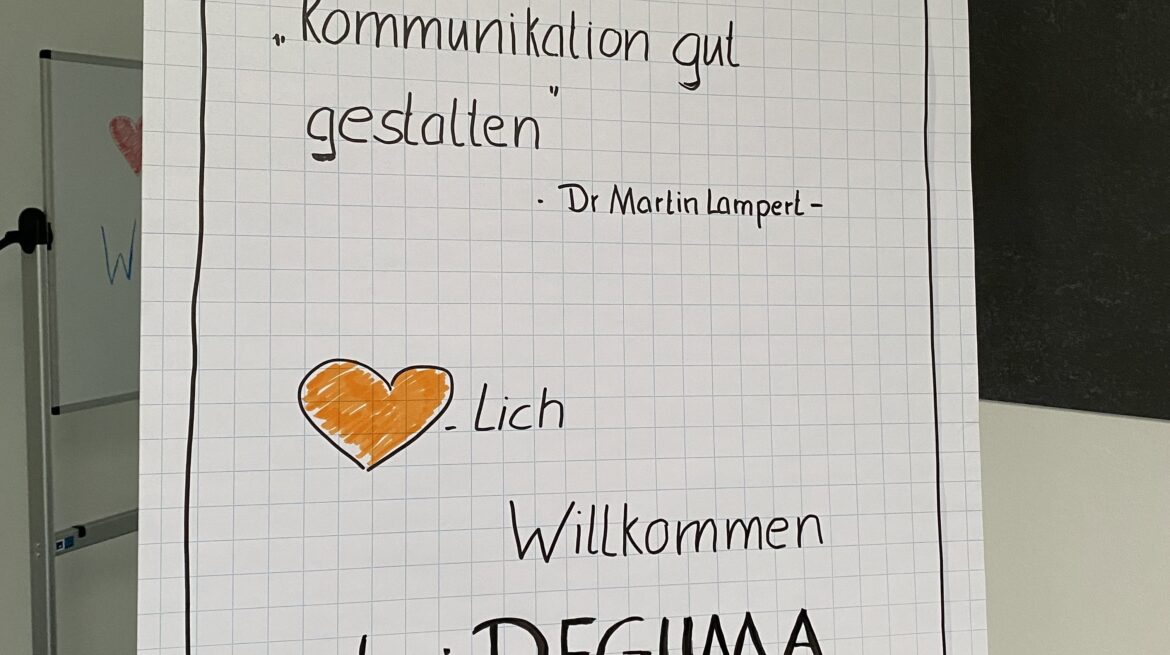 „Kommunikation gut
gestalten"
- Dr Martin Lampert -
- Lich
Willkommen
bei DEGUMA
W